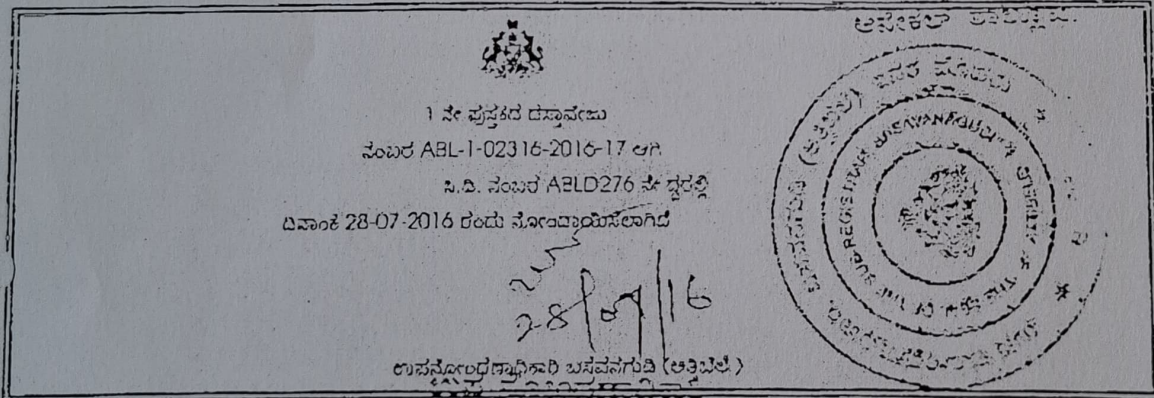 ಆನೇಕಲ್
1 ನೇ ಪುಸ್ತಕದ ದಸ್ತಾವೇಜು
ನಂಬರ ABL-1-02316-2016-17 ಆಗಿ
ಸಿ.ಡಿ. ನಂಬರ ABLD276 ನೇ ದ್ದರಲ್ಲಿ
ದಿನಾಂಕ 28-07-2016 ರಂದು ನೋಂದಾಯಿಸಲಾಗಿದೆ
ಉಪನೋಂಧಣಾಧಿಕಾರಿ ಬಸವನಗುಡಿ (ಅತ್ತಿಬೆಲೆ)
THE SEAL OF THE SUB-REGISTRAR BASAVANAGUDI